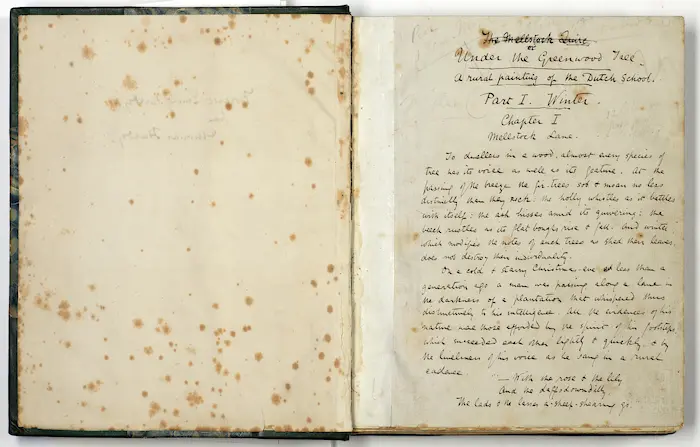 The Mellstock Quire
or
Under the Greenwood Tree
A rural painting of the Dutch School.
Part I. Winter.
Chapter I
Mellstock Lane.
To dwellers in a wood, almost every species of
tree has its voice as well as its feature. At the
passing of the breeze the fir-trees sob & moan no less
distinctly than they rock: the holly whistles as it battles
with itself: the ash hisses amid its quivering: the
beech rustles as its flat boughs rise & fall. And winter
which modifies the notes of such trees as shed their leaves,
does not destroy their individuality.
On a cold & starry Christmas-eve less than a
generation ago a man was passing along a lane in
the darkness of a plantation that whispered thus
distinctively to his intelligence. All the evidences of his
nature were those afforded by the spirit of his footsteps,
which succeeded each other lightly & quickly, & by
the liveliness of his voice as he sang in a rural
cadence.
"— With the rose & the lily
And the daffodowndilly,
The lads & the lasses a-sheep-shearing go.